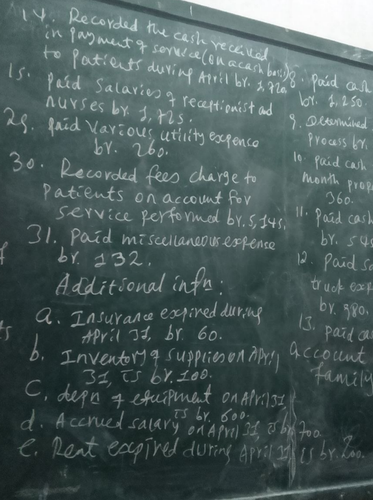 14. Recorded the cash received
in payment of service (on a cash basis)
to patients during April br. 1,920
15. Paid Salaries of receptionist and
nurses br. 1,725.
29. paid Various utility expence
br. 260.
30. Recorded fees charge to
Patients on account for
service performed br. 5,145.
31. Paid miscellaneous expense
br. 132.
Additional infn:
a. Insurance expired during
April 31, br. 60.
b. Inventory of supplies on April
31, is br. 100.
C. depn of equipment on April 31
is br. 600.
d. Accrued salary on April 31, is br. 700
e. Rent expired during April 31 is br.
8. paid cash
br. 1,250.
9. Determined
Process br.
10. paid cash
month prop
360.
11. paid cash
br. 545
12. Paid
truck exp
br. 980.
13. paid ca
account
family